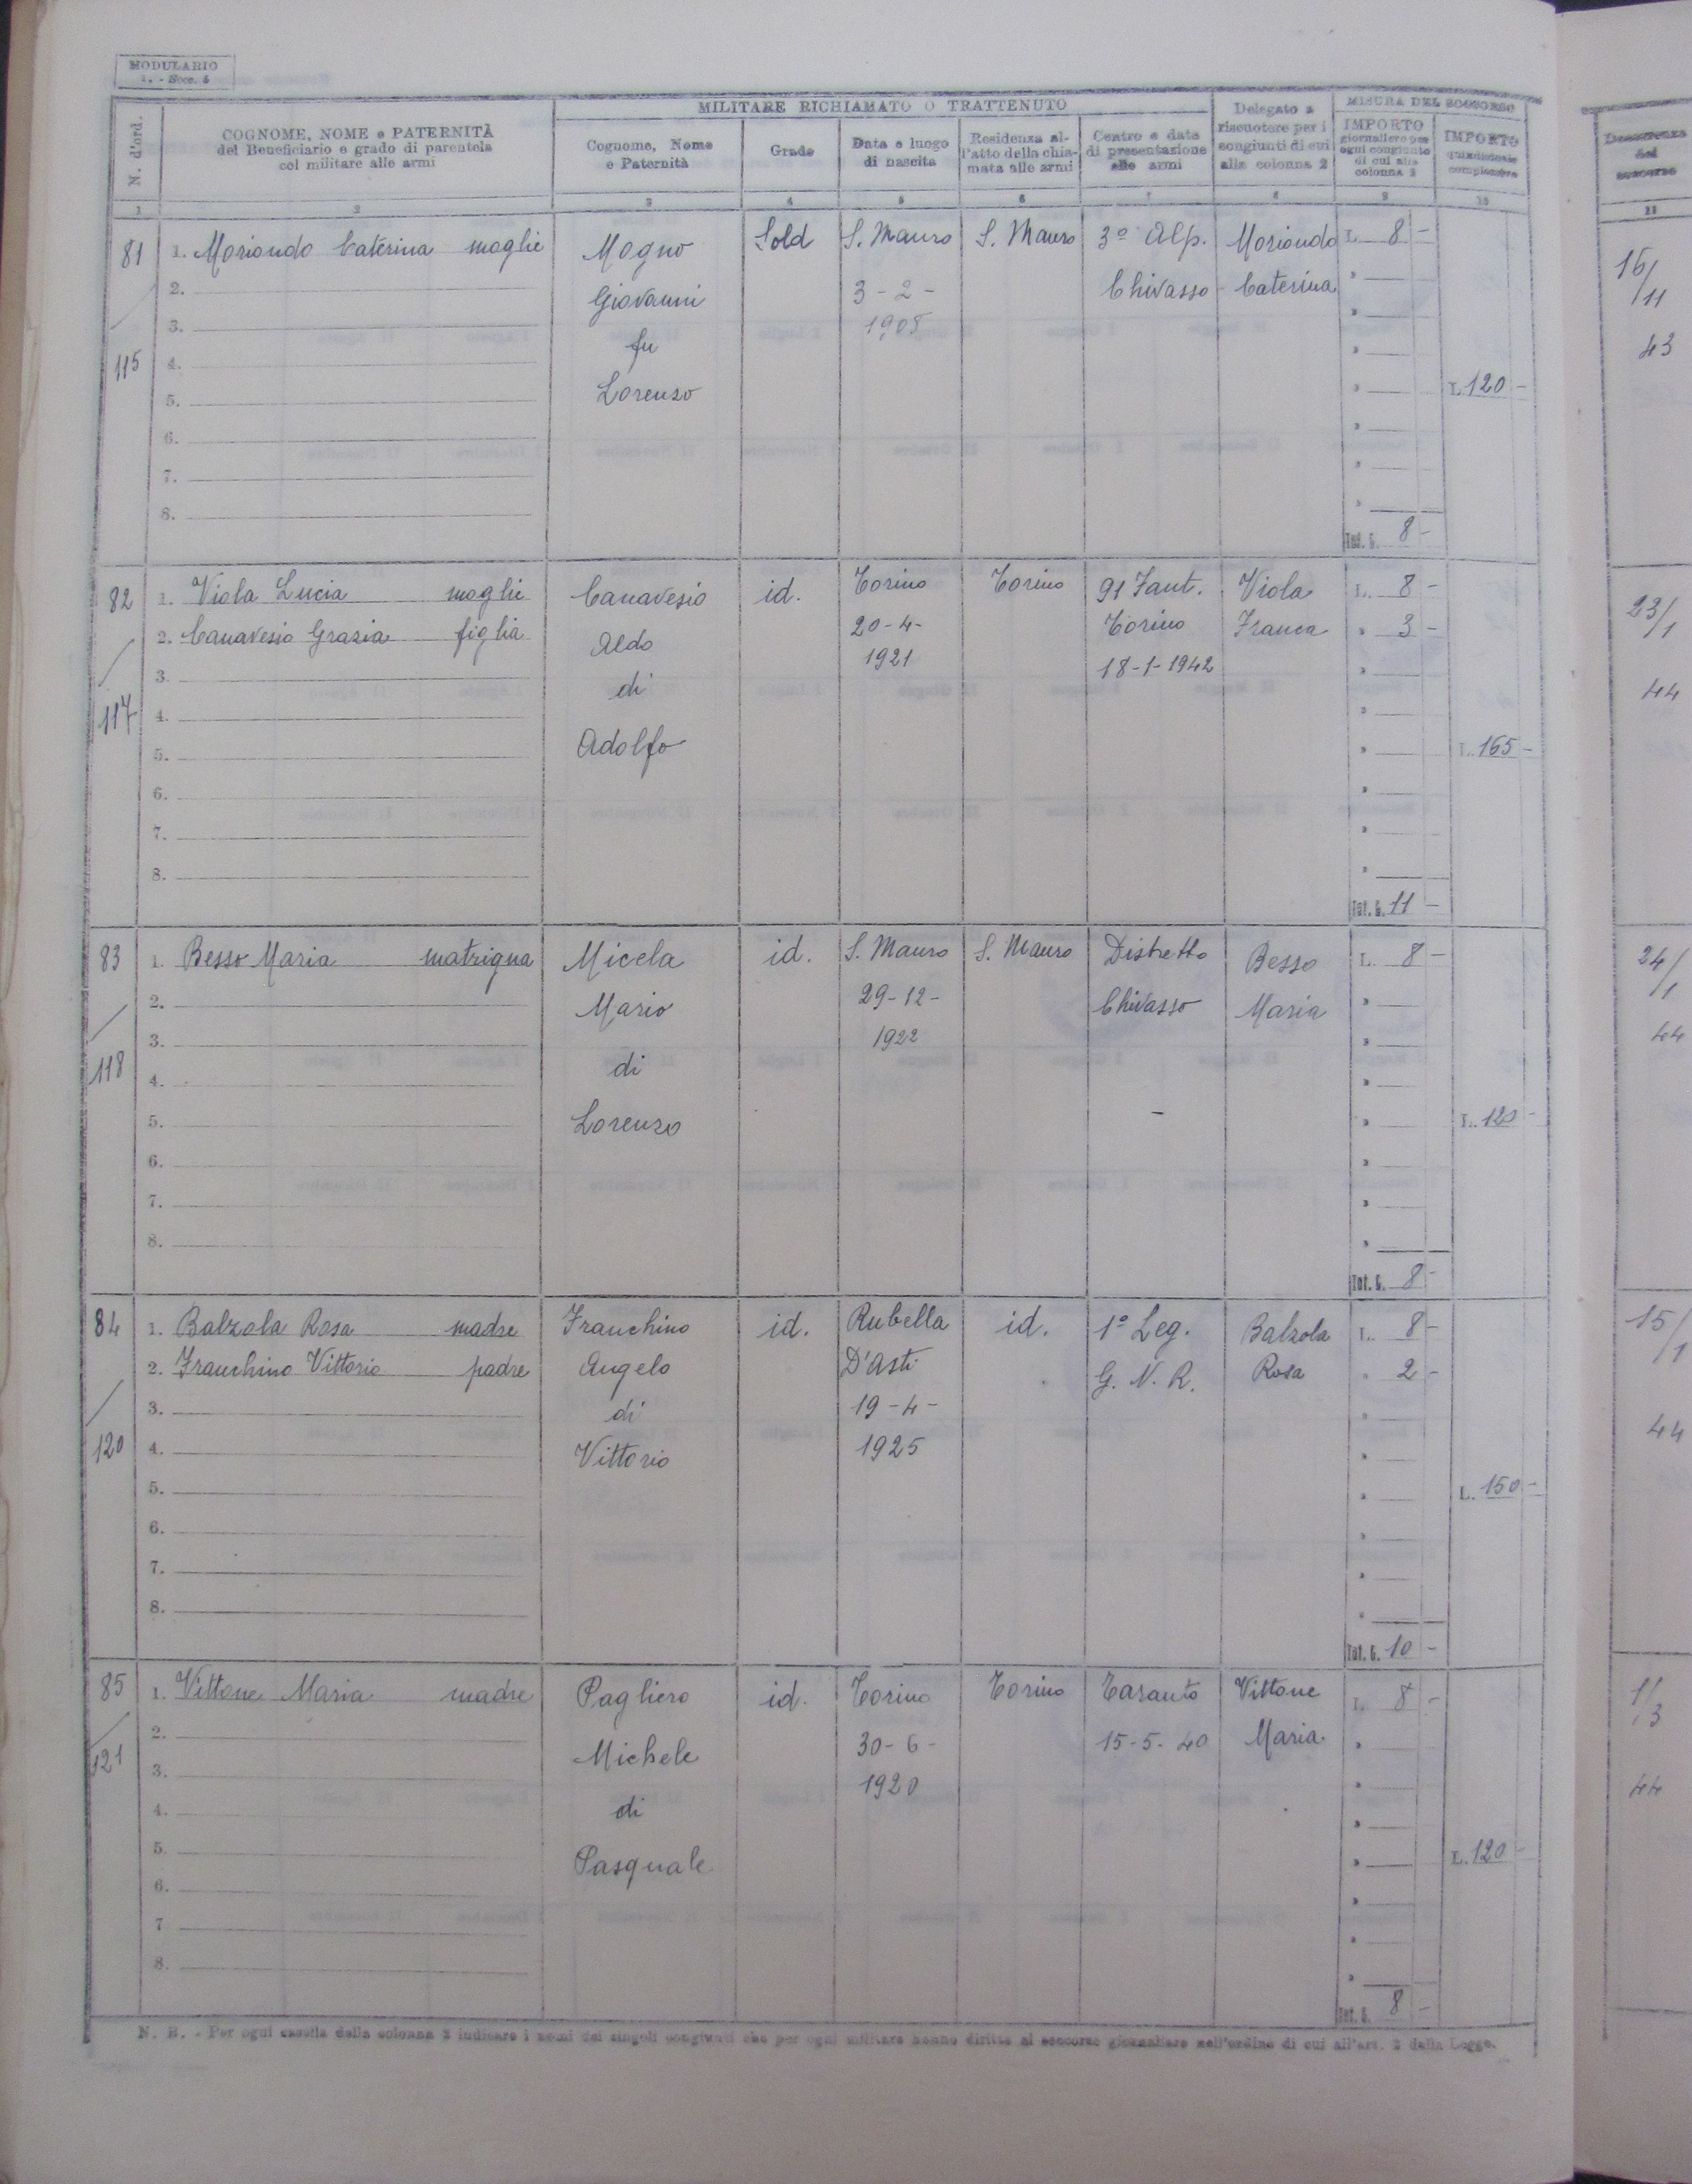 MODULARIO
1. - Socc. 5
N. d'ord.
COGNOME, NOME e PATERNITÀ
del Beneficiario e grado di parentela
col militare alle armi
MILITARE RICHIAMATO O TRATTENUTO
Cognome, Nome
e Paternità
Grado
Data e luogo
di nascita
Residenza al-
l'atto della chia-
mata alle armi
Centro e data
di presentazione
alle armi
Delegato a
riscuotere per i
congiunti di cui
alla colonna 2
MISURA DEL SOCCORSO
IMPORTO
giornaliero per
ogni congiunto
di cui alla
colonna 2
IMPORTO
quindicinale
complessivo
Decorrenza
del
soccorso
1 2 3 4 5 6 7 8 9 10 11
81
115
1. Moriondo Caterina moglie
2.
3.
4.
5.
6.
7.
8.
Mogno
Giovanni
fu
Lorenzo
Sold
S. Mauro
3 - 2 -
1908
S. Mauro
3º Alp.
Chivasso
Moriondo
Caterina
L. 8 -
Tot. G. 8 -
L. 120 -
16/
/11
43
82
117
1. Viola Lucia moglie
2. Canavesio Grazia figlia
3.
4.
5.
6.
7.
8.
Canavesio
Aldo
di
Adolfo
id.
Torino
20-4-
1921
Torino
91 Fant.
Torino
18-1-1942
Viola
Franca
L. 8 -
" 3 -
Tot. G. 11 -
L. 165 -
23/
/1
44
83
118
1. Besso Maria matrigna
2.
3.
4.
5.
6.
7.
8.
Micela
Mario
di
Lorenzo
id.
S. Mauro
29-12-
1922
S. Mauro
Distretto
Chivasso
-
Besso
Maria
L. 8 -
Tot. G. 8 -
L. 120 -
24/
/1
44
84
120
1. Balzola Rosa madre
2. Franchino Vittorio padre
3.
4.
5.
6.
7.
8.
Franchino
Angelo
di
Vittorio
id.
Rubella
D'Asti
19-4-
1925
id.
1º Leg.
G. N. R.
Balzola
Rosa
L. 8 -
" 2 -
Tot. G. 10 -
L. 150 -
15/
/1
44
85
121
1. Vittone Maria madre
2.
3.
4.
5.
6.
7
8.
Pagliero
Michele
di
Pasquale
id.
Torino
30-6-
1920
Torino
Taranto
15-5-40
Vittone
Maria
L. 8 -
Tot. G. 8 -
L. 120 -
1/
/3
44
N. B. - Per ogni casella della colonna 2 indicare i nomi dei singoli congiunti che per ogni militare hanno diritto al soccorso giornaliero nell'ordine di cui all'art. 2 della Legge.